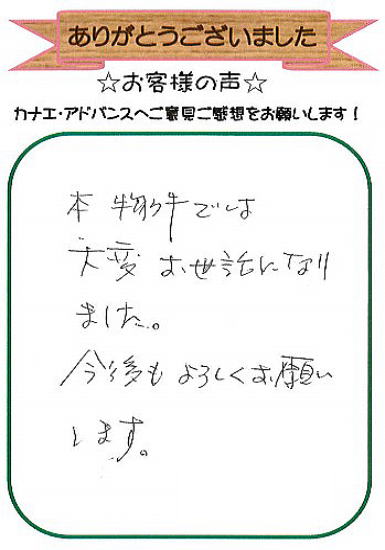 ありがとうございました
☆お客様の声☆
カナエ・アドバンスへご意見ご感想をお願いします！
本物件では
大変お世話になり
ました。
今後もよろしくお願い
します。